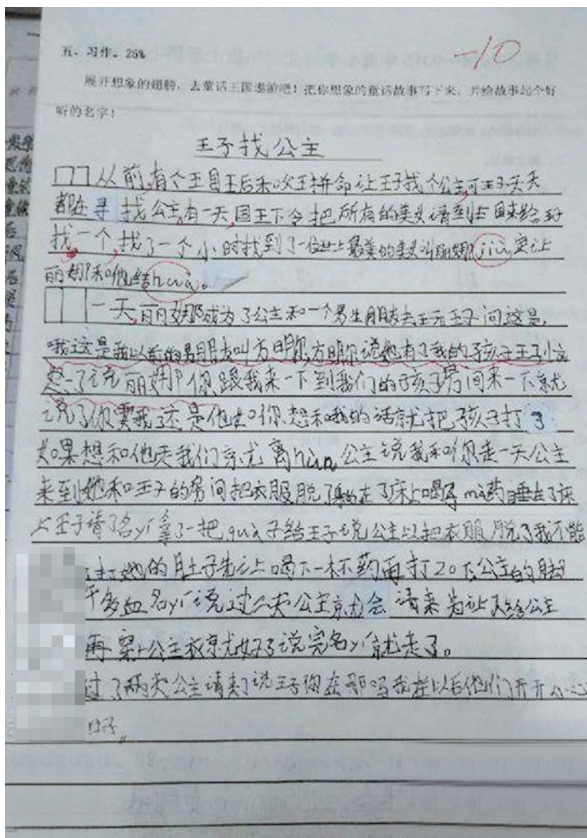 五、习作。26%
-10
展开想象的翅膀，去童话王国遨游吧！把你想象的童话故事写下来，并给故事起个好
听的名字！
王子找公主
从前,有个王国王后和国王拼命让王子找个公主,可王子天天
都在寻找公主,有一天,国王下令把所有的美女请到王国来给王子
找一个,找了一个小时找到了一位世上最美的美女叫丽娜,jiù定让
丽娜和他结hūn。
一天,丽娜成为了公主和一个男生朋友去王子问这是,
哦这是我以前的男朋友叫方明尔,方明尔说她有了我的孩子王子
想了说丽娜你跟我来一下到我们的孩子房间来一下就
说了你要我还是他你想和我的话就把孩子打了
如果想和他天我们京尤离hūn公主说我和你走一天公主
来到她和王子的房间把衣服脱了在了床上喝了mí药睡在了床
上王子请了名yī拿了一把guà子给王子说公主以把衣服脱了我不能
打她的肚子先让喝下一杯药再打20下公主的脚
多血名yī说过公主京尤会请来先让给公主
再公主衣京尤好了说完名yī就走了。
过了两天公主请来了说王子你在哪吗我以后他们开开心心
日子。